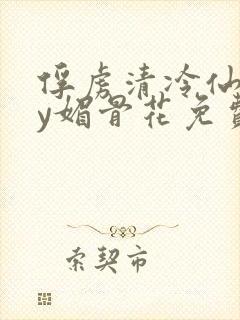 俘虏清冷仙
y媚骨花免费
索契市